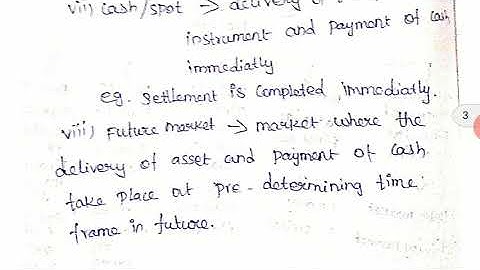 vii) cash/spot → delivery of
instrument and payment of cash
immediatly
eg. settlement is completed immediatly.
viii) Future market → market where the
delivery of asset and payment of cash
take place at pre-determining time
frame in future.
3